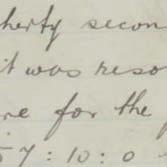 herty secon
it was reso
re for the
57:10:0